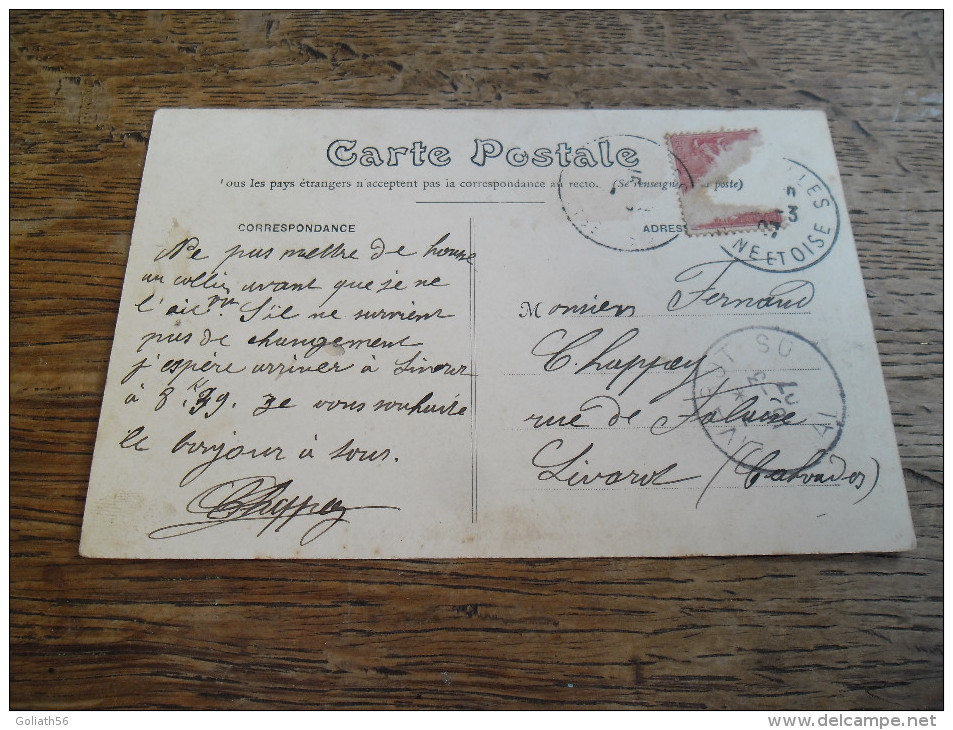 Carte Postale
Tous les pays étrangers n'acceptent pas la correspondance au recto. (Se renseigner poste)
CORRESPONDANCE
ADRESS
Ne pas mettre de house
un collier avant que je ne
l'aie vu. S'il ne survient
pas de changement
j'espère arriver à Livarot
à 8.h39. Je vous souhaite
le bonjour à tous.
Chappey
Monsieur Fernand
Chappey
rue de Falaise
Livarot (Calvados)
LLES
3
07
NE ET OISE
LIVAROT
Goliath56
www.delcampe.net